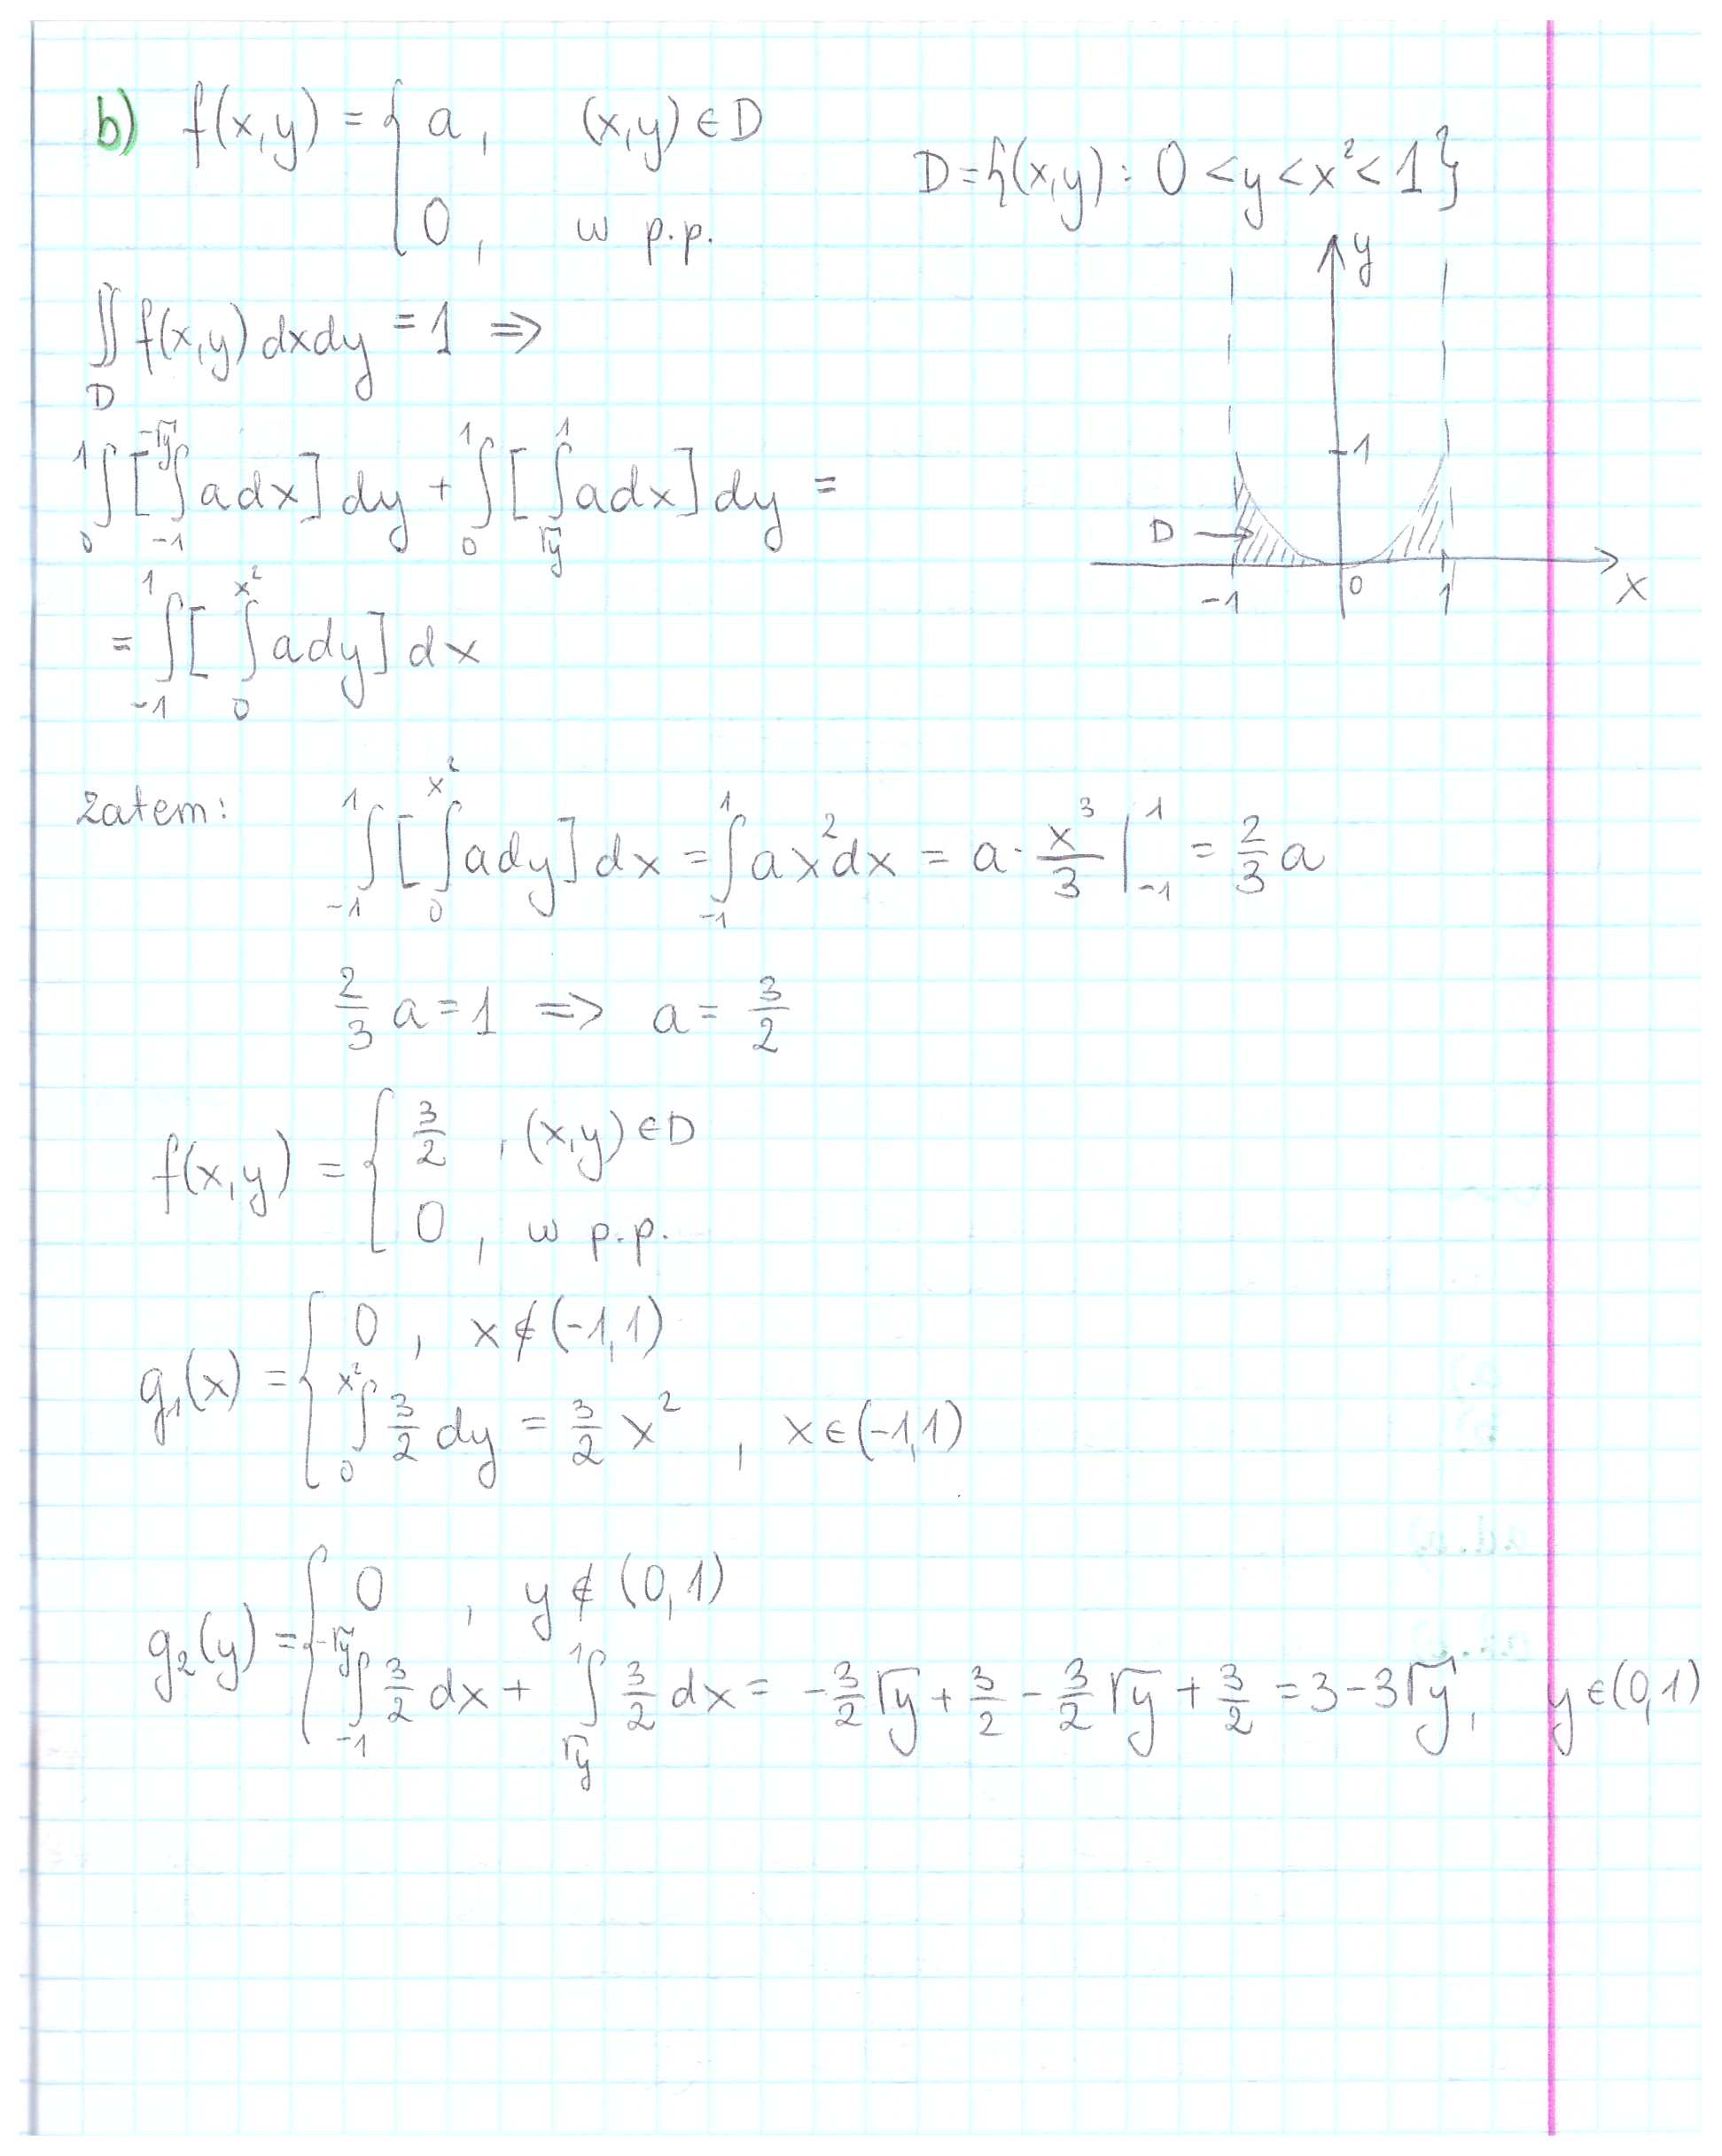 b) f(x,y) = { a, (x,y) ∈ D
0, w p.p.
D = {(x,y) : 0 < y < x² < 1}
y
1
D →
-1 0 1 x
∬_D f(x,y) dxdy = 1 ⇒
∫_0^1 [∫_{-1}^{-√y} a dx] dy + ∫_0^1 [∫_{√y}^1 a dx] dy =
= ∫_{-1}^1 [∫_0^{x²} a dy] dx
Zatem: ∫_{-1}^1 [∫_0^{x²} a dy] dx = ∫_{-1}^1 ax² dx = a · x³/3 |_{-1}^1 = 2/3 a
2/3 a = 1 ⇒ a = 3/2
f(x,y) = { 3/2, (x,y) ∈ D
0, w p.p.
g₁(x) = { 0, x ∉ (-1,1)
∫_0^{x²} 3/2 dy = 3/2 x², x ∈ (-1,1)
g₂(y) = { 0, y ∉ (0,1)
∫_{-1}^{-√y} 3/2 dx + ∫_{√y}^1 3/2 dx = -3/2 √y + 3/2 - 3/2 √y + 3/2 = 3 - 3√y, y ∈ (0,1)